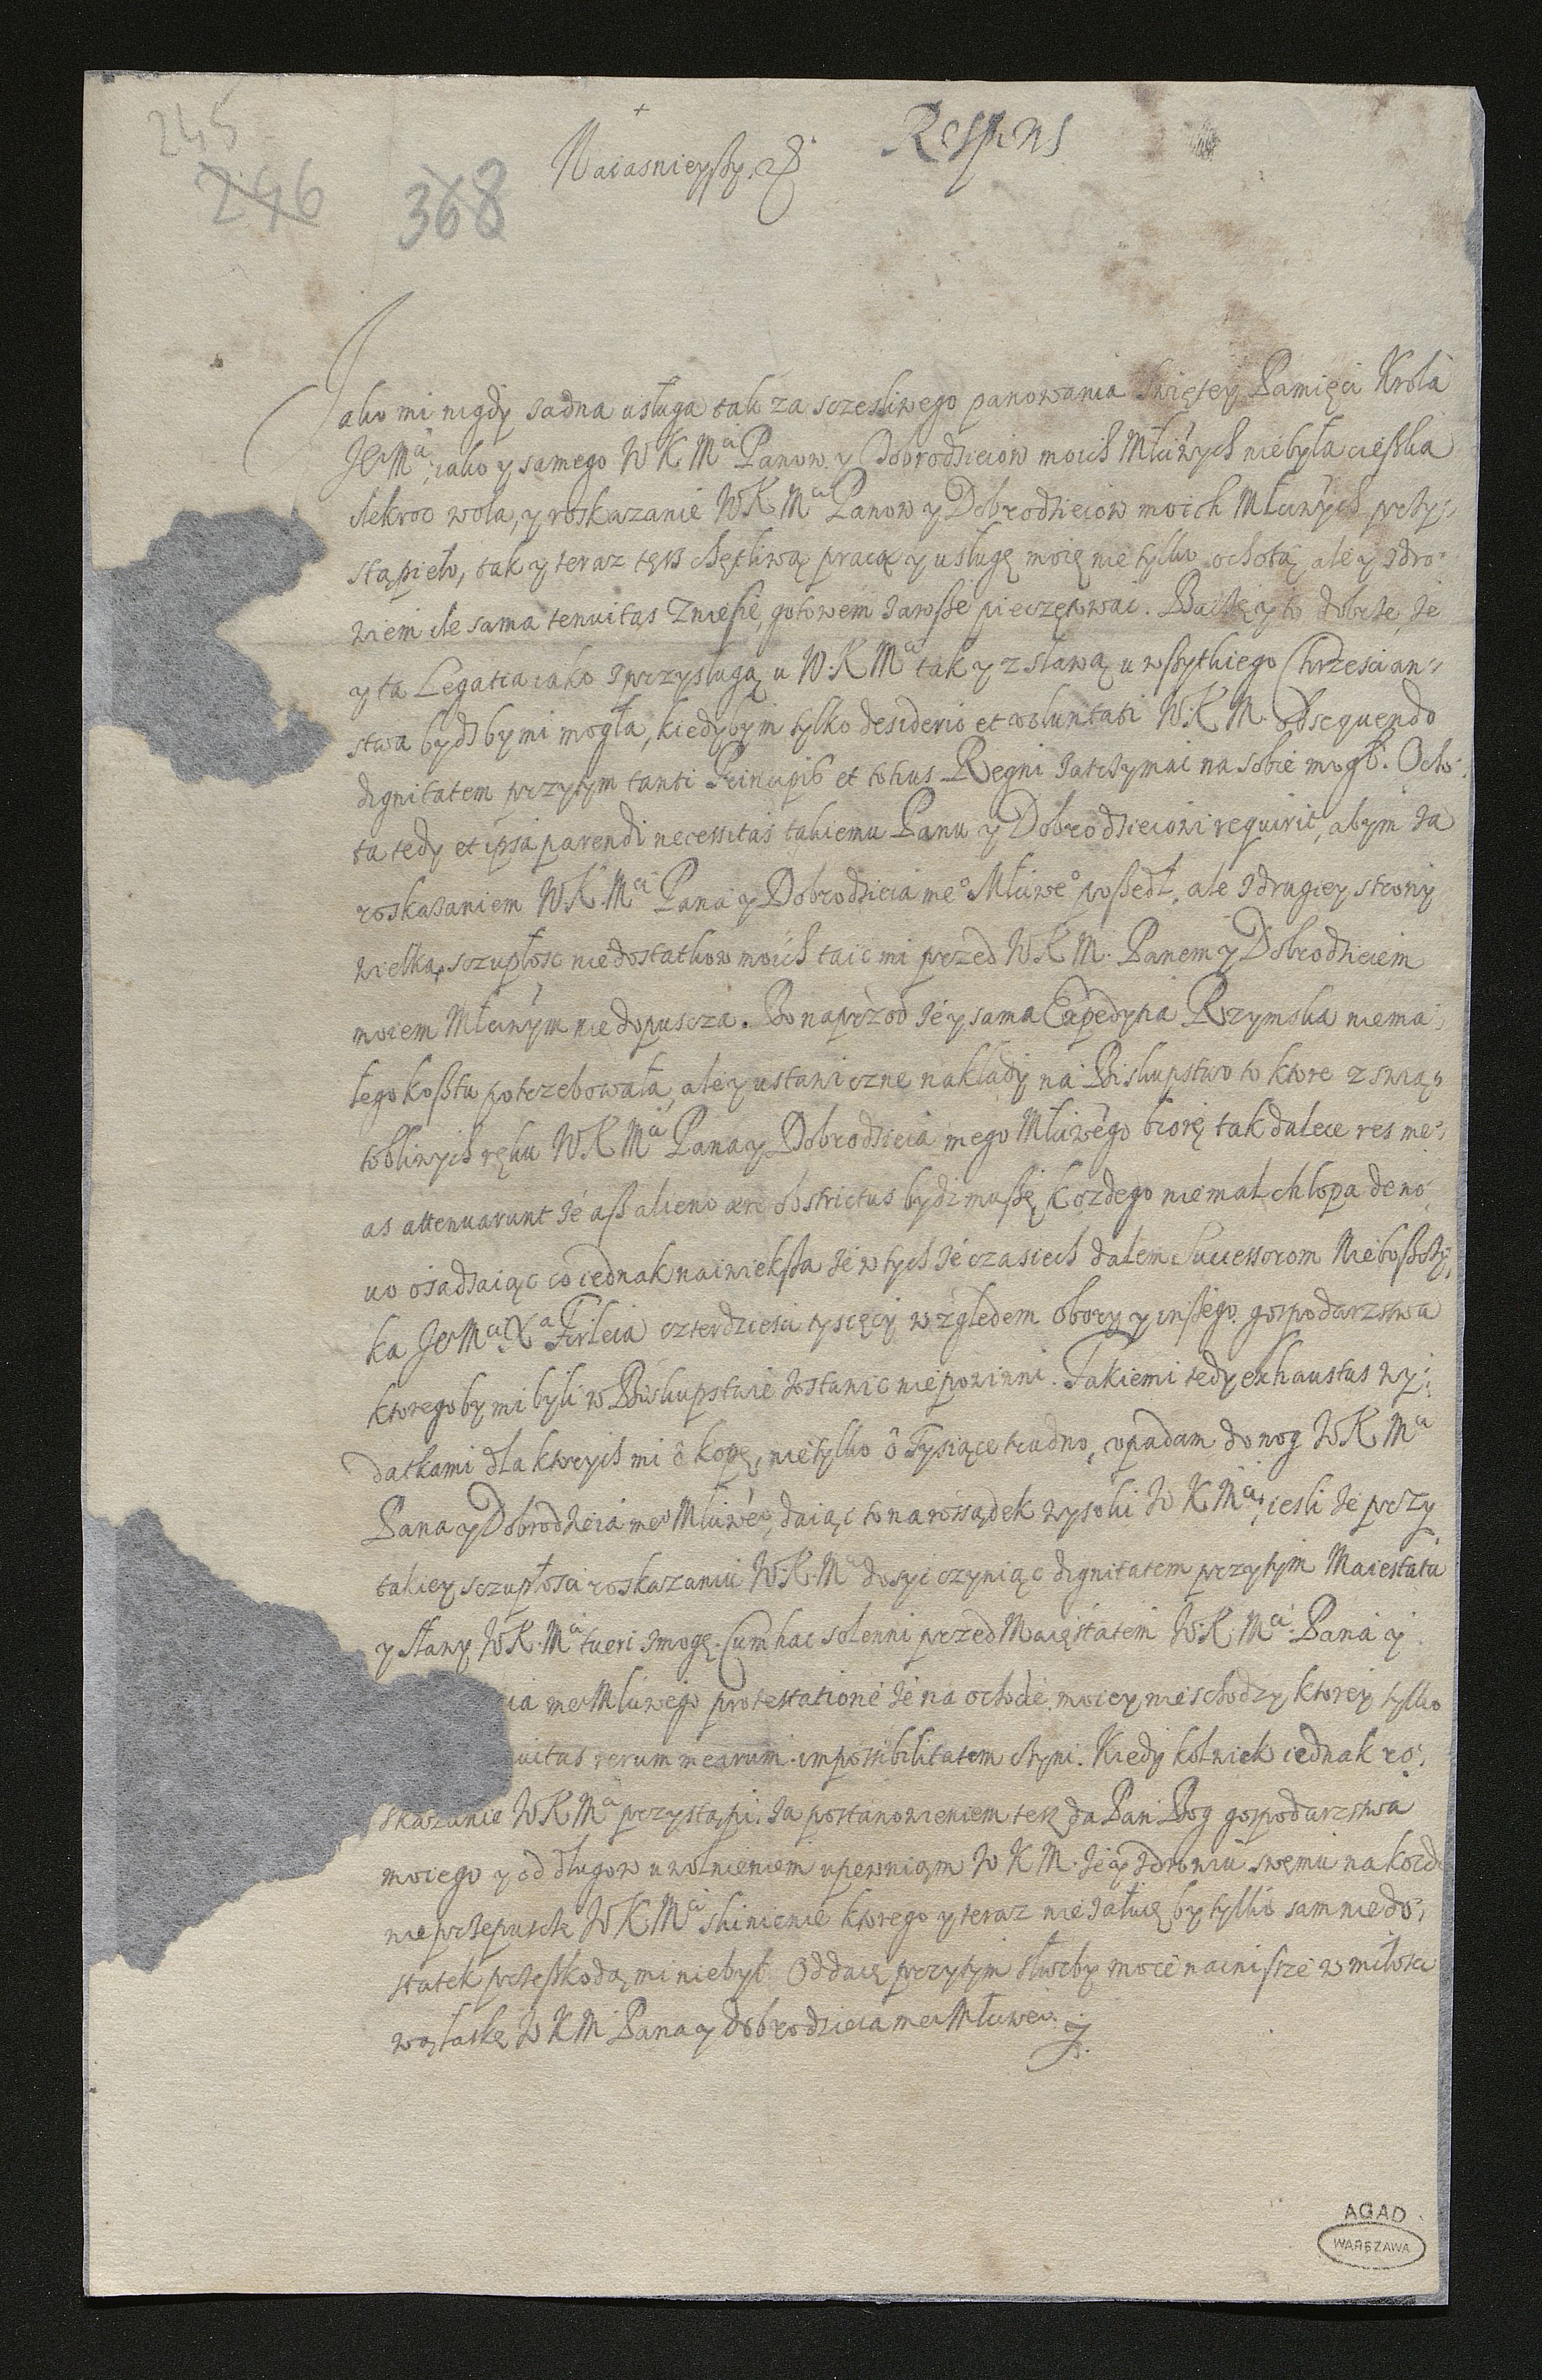 245
246 368
Naiasnieyszy
Respons
Jako mi nigdy żadna usługa tak za szczesliwego panowania Swiętey Pamięci Krola
JeoMci, iako y samego WKMci Panow y Dobrodzieiow moich Młciwych niebyła cięszka
ilekroc wola, y roskazanie WKMci Panow y Dobrodzieiow moich Młciwych przy,
stąpieło, tak y teraz tęsz chętliwą pracą y usługę moię nie tylko ochotą, ale y zdro,
wiem ile sama tenuitas zniesie, gotowem zawsze pieczętowac. Baczę y to dobrze, że
y ta Legatia iako z przysługą u W.K.Mci tak y z sławą u wszytkiego Chrzescian,
stwa bydz by mi mogła, kiedybym tylko desiderio et voluntati W.K.M. obsequendo
dignitatem przytym tanti Principis et totius Regni zatrzymac na sobie mogł. Ocho,
ta tedy et ipsa parendi necessitas takiemu Panu y Dobrodzieiowi requirit, abym za
roskazaniem WK.Mci Pana y Dobrodzieia meo Młciweo poszedł, ale z drugiey strony
wielka sczupłosc niedostatkow moich taic mi przed WKM. Panem y Dobrodzieiem
moiem Młciwym nie dopuscza. Bo naprzod że y sama Expedytia Rzymska niema,
łego kosztu potrzebowała, ale y ustawiczne nakłady na Biskupstwo to ktore z swią,
tobliwych ręku WKMci Pana y Dobrodzieia mego Młciwego biorę tak dalece res me,
as attenuarunt że asz alieno aere obstrictus bydz muszę, kozdego niemal chłopa deno,
uo osadzaiąc co iednak nawieksza że w tych że czasiech dałem Successorom Nieboszczy,
ka JeoMci Xa Firleia czterdziesci tysięcy względem obory y inszego gospodarzstwa
ktoregoby mi byli w Biskupstwie zostawic niepowinni. Takiemi tedy exhaustus wy,
datkami dla ktorych mi o kopę, nietylko o Tysiące trudno, upadam do nog WKMci
Pana y Dobrodzieia meo Młciweo, daiąc to na rozsądek wysoki WKMci, iesli że przy
takiey sczupłosci roskazaniu W.K.Mci dosyc czyniąc dignitatem przytym Maiestatu
y sławy WK.Mci tueri zmogę. Cum hac solenni przed Maiestatem W.K.Mci Pana y
ia meo Młciwego protestatione że na ochocie moiey nie schodzy, ktorey tylko
uitas rerum mearum impossibilitatem czyni. Kiedykolwiek iednak ro,
skazanie WKMci przystąpi, za postanowieniem tesz da Pan Bog gospodarzstwa
moiego y od długow uwolnieniem upewniam WKM. że y zdrowiu swemu na kozde
nie przepuscze WKMci skinienie ktorego y teraz nie załuię by tylko sam niedo,
statek przeszkodą mi niebył. Oddaię przytym służby moie nainiższe w miłosci
wą łaskę WKM Pana y Dobrodzieia meo Młciweo.
AGAD
WARSZAWA